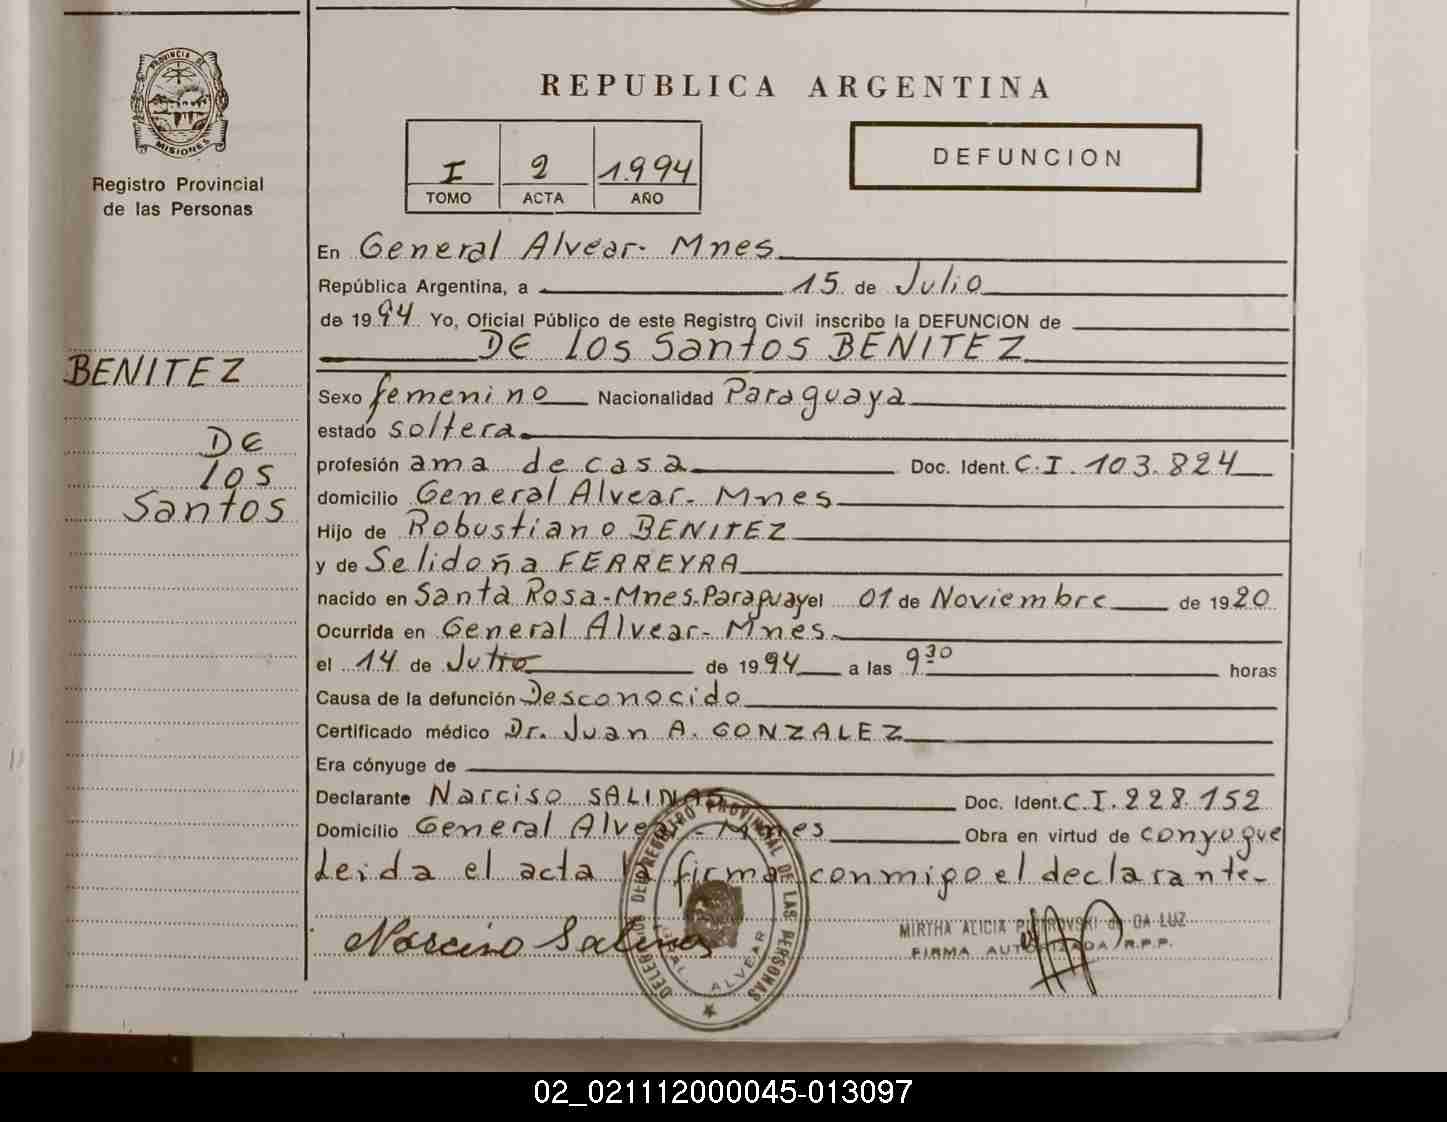 PROVINCIA DE
MISIONES
Registro Provincial
de las Personas
REPUBLICA ARGENTINA
I 2 1.994
TOMO ACTA AÑO
DEFUNCION
En General Alvear- Mnes
República Argentina, a 15 de Julio
de 1994 Yo, Oficial Público de este Registro Civil inscribo la DEFUNCION de
DE los Santos BENITEZ
BENITEZ
DE
los
Santos
Sexo femenino Nacionalidad Paraguaya
estado soltera
profesión ama de casa Doc. Ident. C.I. 103.824
domicilio General Alvear- Mnes
Hijo de Robustiano BENITEZ
y de Selidoña FERREYRA
nacido en Santa Rosa-Mnes-Paraguay el 01 de Noviembre de 1920
Ocurrida en General Alvear- Mnes
el 14 de Julio de 1994 a las 9 30 horas
Causa de la defunción Desconocido
Certificado médico Dr. Juan A. GONZALEZ
Era cónyuge de
Declarante Narciso SALINAS Doc. Ident. C.I. 228.152
Domicilio General Alvear- Mnes Obra en virtud de conyogue
Leida el acta la firma conmigo el declarante-
Narciso Salinas
MIRTHA ALICIA PIOTROVSKI de DA LUZ
FIRMA AUTORIZADA R.P.P.
DELEGACION DEL REGISTRO PROVINCIAL DE LAS PERSONAS
GRAL ALVEAR
02_021112000045-013097